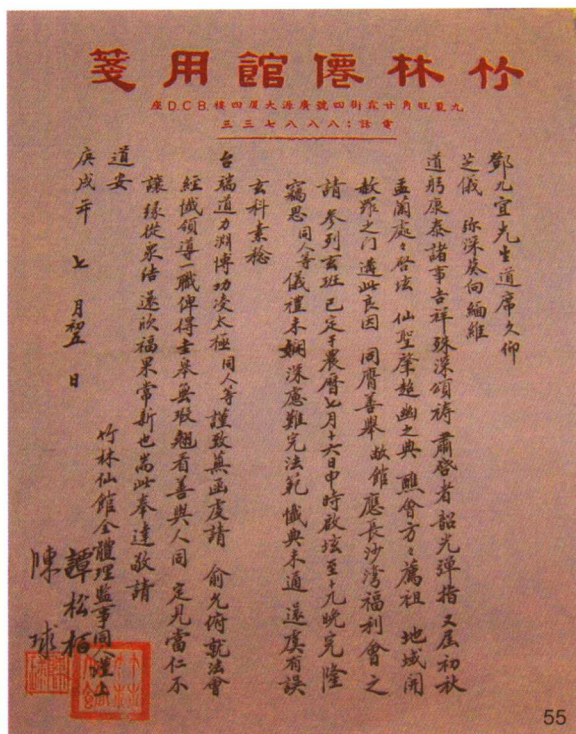 竹林僊館用箋
九龍旺角甘霖街四號廣源大厦四樓B.C.D座
電話：八八八七三三
鄧九宜先生道席久仰
芝儀 弥深葵向緬維
道躬康泰諸事吉祥殊深頌禱 肅啓者韶光彈指又屆初秋
盂蘭處々啓坛 仙聖肇超幽之典 醮會方々薦祖 地域開
赦罪之门 遘此良因 同膺善舉 敝館應長沙湾福利會之
請 參列玄班 已定于農曆七月十六日申時啟坛至十九晚完隆
竊思同人等儀禮未嫻深慮難完法範懺典未通 遂虞有誤
玄科素稔
台端道力淵博功凌太極同人等謹致蕪函虔請 俞允俯就法會
經懺領導一職俾得士舉無瑕翹看善與人同 定見當仁不
讓緣從衆結還欣福果常新也耑此奉達敬請
道安
竹林仙館全體理監事同人謹上
譚松栢
陳球
庚戌年 七月初五日
55